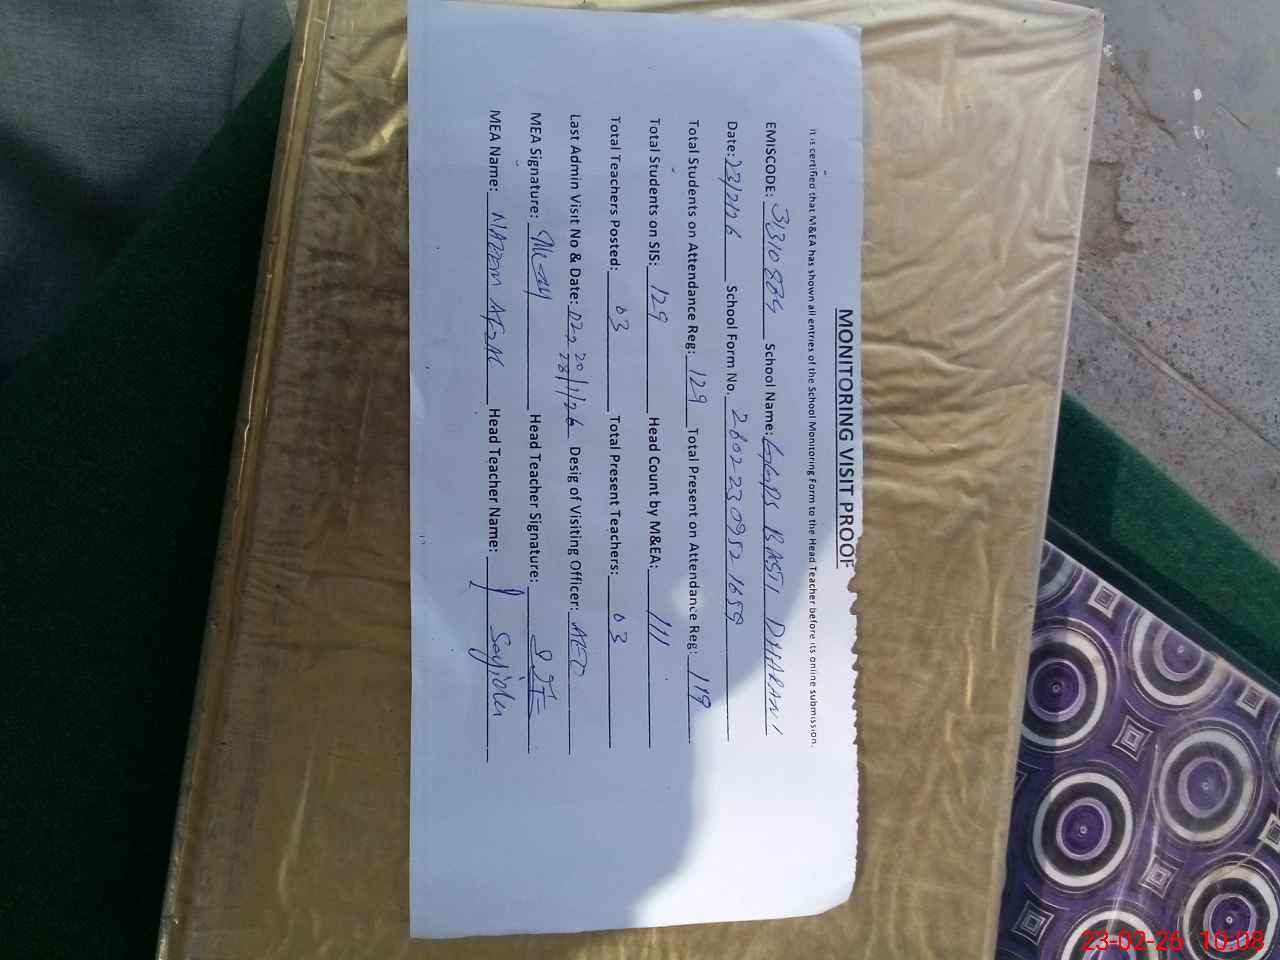 MONITORING VISIT PROOF
It is certified that M&EA has shown all entries of the School Monitoring Form to the Head Teacher before its online submission.
EMISCODE: 31310884 School Name: GGPS BASTI DHARANI
Date: 23/2/26 School Form No. 26022309521659
Total Students on Attendance Reg: 129 Total Present on Attendance Reg: 119
Total Students on SIS: 129 Head Count by M&EA: 111
Total Teachers Posted: 03 Total Present Teachers: 03
Last Admin Visit No & Date: 02, 20 28/1/26 Desig of Visiting Officer: AEO
MEA Signature: Head Teacher Signature:
MEA Name: Head Teacher Name: Sajida
23-02-26 10:08